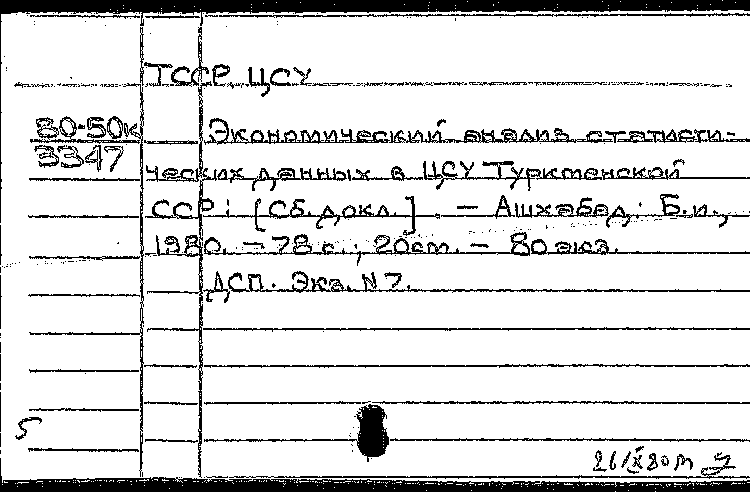 ТССР, ЦСУ
80-50к
3347
Экономический анализ статисти-
ческих данных в ЦСУ Туркменской
ССР: [Сб. докл.]. — Ашхабад: Б.и.,
1980. — 78 с.; 20см. — 80 экз.
ДСП. Экз. N 7.
5
26/X 80